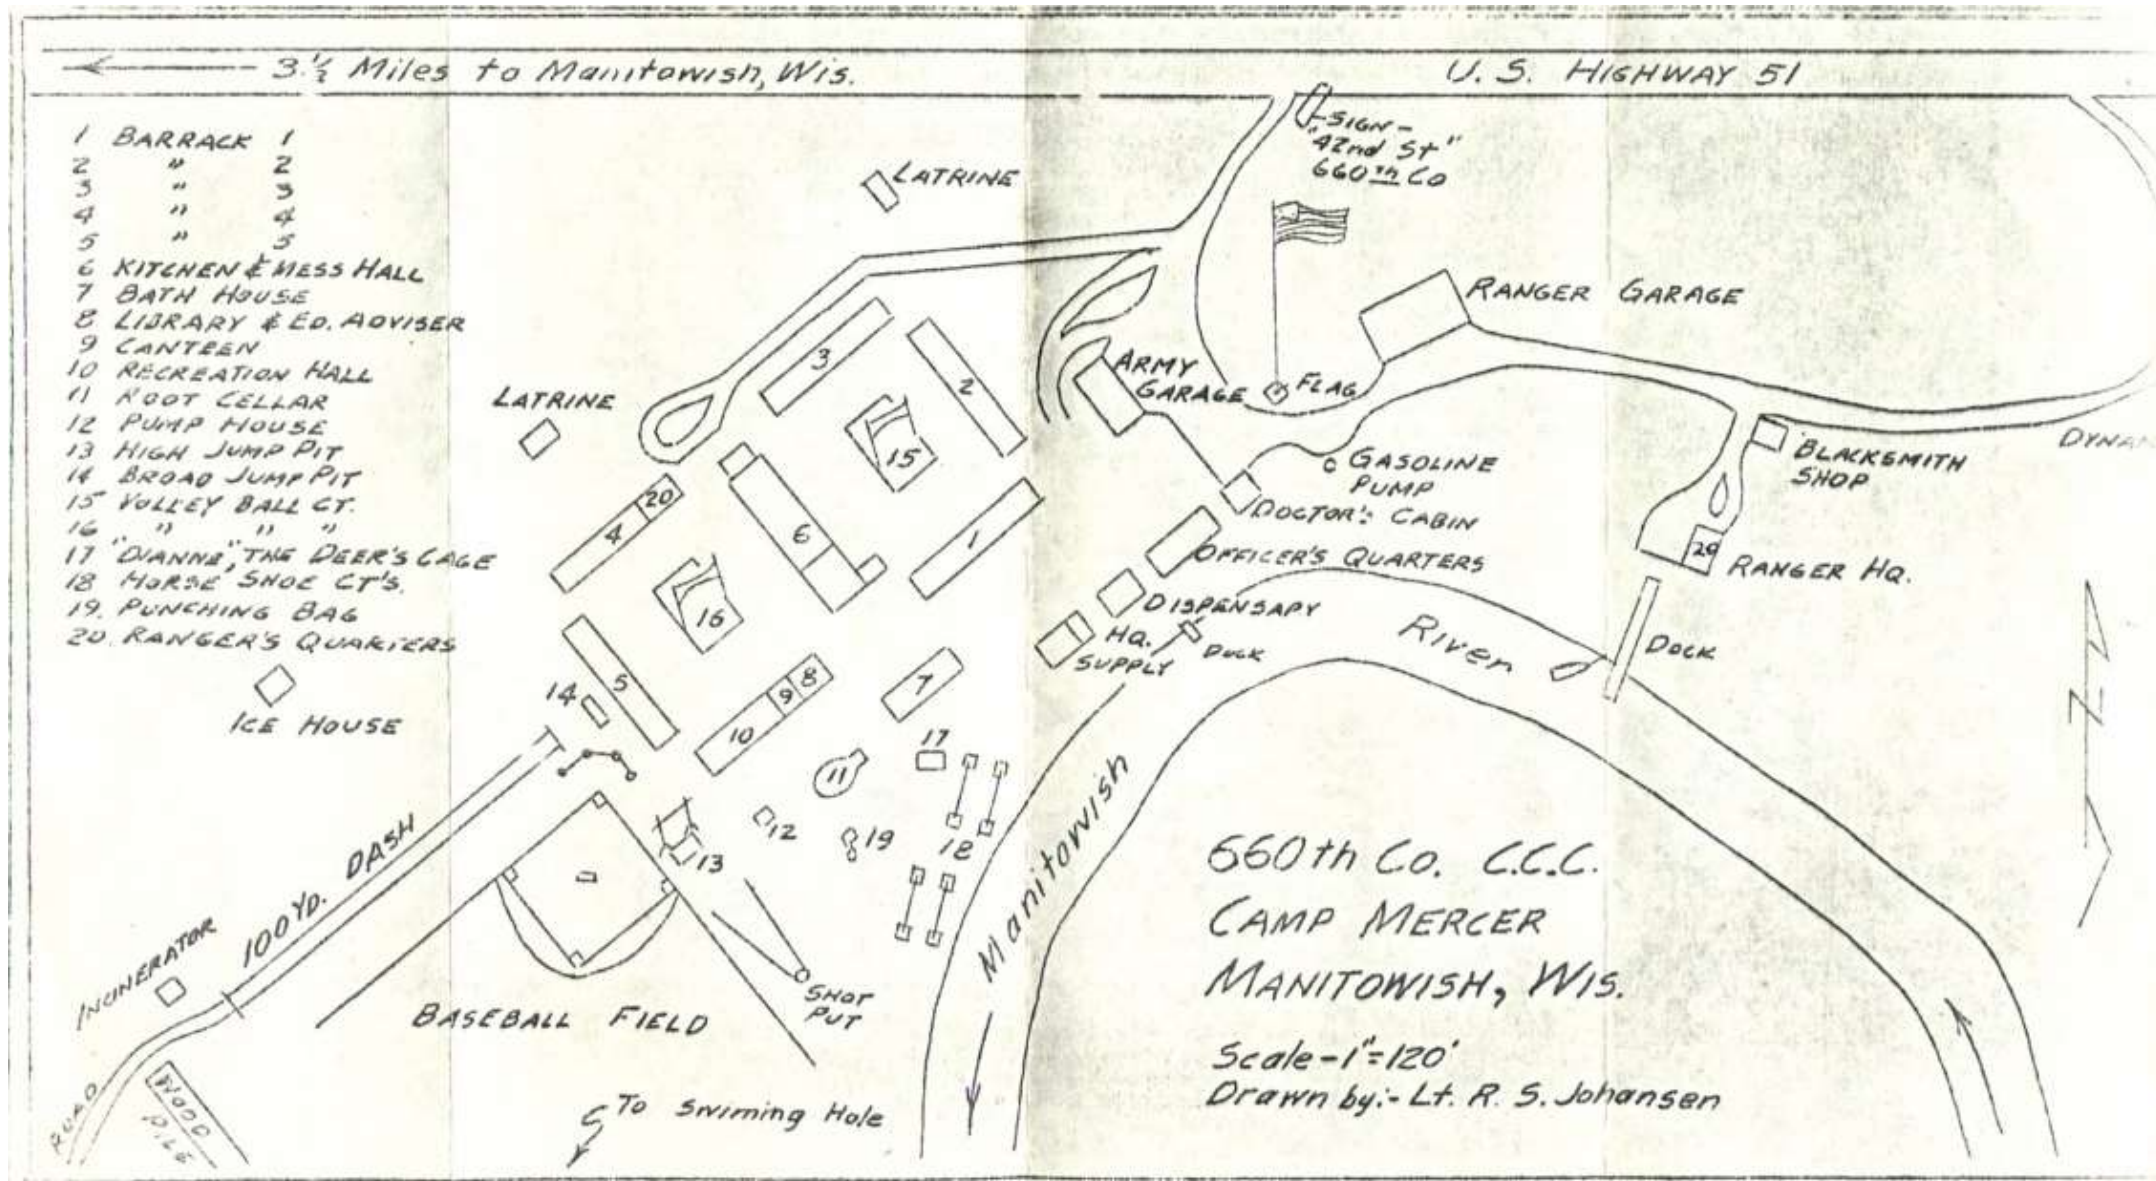 3 1/2 Miles to Manitowish, Wis.
U. S. HIGHWAY 51
1 BARRACK 1
2 " 2
3 " 3
4 " 4
5 " 5
6 KITCHEN & MESS HALL
7 BATH HOUSE
8 LIBRARY & ED. ADVISER
9 CANTEEN
10 RECREATION HALL
11 ROOT CELLAR
12 PUMP HOUSE
13 HIGH JUMP PIT
14 BROAD JUMP PIT
15 VOLLEY BALL CT.
16 " " "
17 "DIANNE", THE DEER'S CAGE
18 HORSE SHOE CT'S.
19. PUNCHING BAG
20. RANGER'S QUARTERS
-SIGN-
"42nd St"
660th Co
LATRINE
RANGER GARAGE
ARMY
GARAGE
FLAG
LATRINE
3
2
15
GASOLINE
PUMP
BLACKSMITH
SHOP
DYNAM
20
4
6
1
DOCTOR'S CABIN
OFFICER'S QUARTERS
20
RANGER HQ.
16
DISPENSARY
HQ.
SUPPLY
DOCK
River
DOCK
5
14
9
8
10
7
ICE HOUSE
17
11
12
19
18
13
Manitowish
100 YD. DASH
INCINERATOR
BASEBALL FIELD
SHOT
PUT
ROAD
WOOD
PILE
To Swiming Hole
660th Co. C.C.C.
CAMP MERCER
MANITOWISH, WIS.
Scale-1"=120'
Drawn by:- Lt. R. S. Johansen